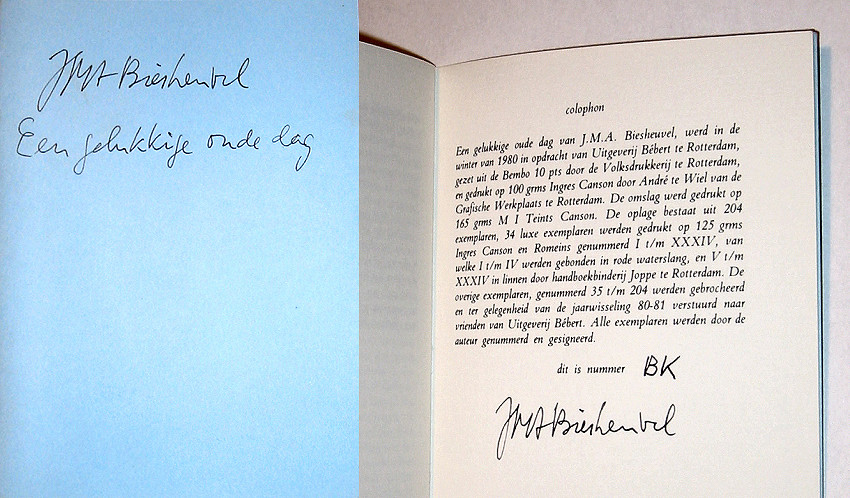 JMA Biesheuvel
Een gelukkige oude dag
colophon
Een gelukkige oude dag van J.M.A. Biesheuvel, werd in de
winter van 1980 in opdracht van Uitgeverij Bébert te Rotterdam,
gezet uit de Bembo 10 pts door de Volksdrukkerij te Rotterdam,
en gedrukt op 100 grms Ingres Canson door André te Wiel van de
Grafische Werkplaats te Rotterdam. De omslag werd gedrukt op
165 grms M I Teints Canson. De oplage bestaat uit 204
exemplaren, 34 luxe exemplaren werden gedrukt op 125 grms
Ingres Canson en Romeins genummerd I t/m XXXIV, van
welke I t/m IV werden gebonden in rode waterslang, en V t/m
XXXIV in linnen door handboekbinderij Joppe te Rotterdam. De
overige exemplaren, genummerd 35 t/m 204 werden gebrocheerd
en ter gelegenheid van de jaarwisseling 80-81 verstuurd naar
vrienden van Uitgeverij Bébert. Alle exemplaren werden door de
auteur genummerd en gesigneerd.
dit is nummer BK
JMA Biesheuvel